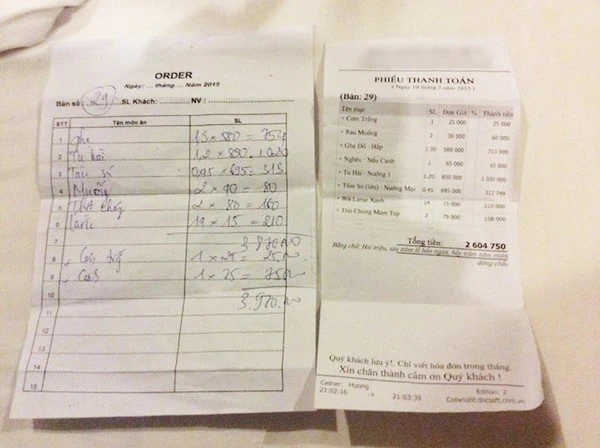 ORDER
Ngày: ... tháng.... Năm 2015
Bàn số: 29 SL Khách: ......... NV : .........
STT Tên món ăn SL
1 ghẹ 1,3 x 580 = 754
2 Tu hài 1,2 x 850 = 1020
3 Tôm sú 0,45 x 695 = 313
4 Muống 2 x 90 = 80
5 Thịt 2 x 80 = 160
6 14 x 15 = 210
7 3.870.000
8 Cơm trắng 1 x 25 = 25.000
9 Canh 1 x 75 = 75.000
10 3.970.000
11
12
13
14
15
PHIẾU THANH TOÁN
( Ngày 10 tháng 7 năm 2015 )
(Bàn: 29)
Tên mục SL Đơn Giá % Thành tiền
+ Cơm Trắng 1 25 000 25 000
+ Rau Muống 2 30 000 60 000
+ Ghẹ Đỏ - Hấp 1.30 580 000 753 999
+ Nghêu - Nấu Canh 1 65 000 65 000
+ Tu Hài - Nướng 1 1.20 850 000 1 020 000
+ Tôm Sú (lớn) - Nướng Mọi 0.45 695 000 312 749
+ Bia Larue Xanh 14 15 000 210 000
+ Thịt Chưng Mắm Tép 2 79 000 158 000
Tổng tiền: 2 604 750
Bằng chữ: Hai triệu, sáu trăm lẻ bốn ngàn, bảy trăm năm mươi
đồng chẵn
Quý khách lưu ý!. Chỉ viết hóa đơn trong tháng.
Xin chân thành cảm ơn Quý khách !
Casher: Huong Edition: 3
21:02:16 -> 21:03:39 Copyright:dncsoft.com.vn